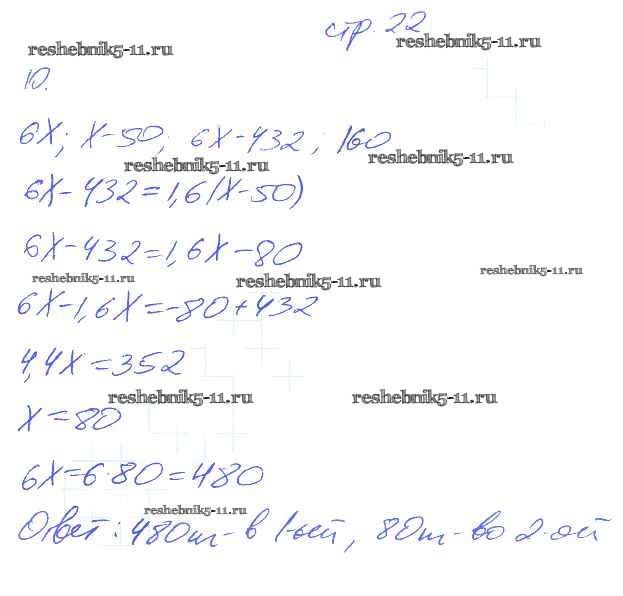 стр. 22
reshebnik5-11.ru reshebnik5-11.ru
10.
6x; x-50; 6x-432; 160
reshebnik5-11.ru reshebnik5-11.ru
6x-432=1,6(x-50)
6x-432=1,6x-80
reshebnik5-11.ru reshebnik5-11.ru reshebnik5-11.ru
6x-1,6x=-80+432
4,4x=352
reshebnik5-11.ru reshebnik5-11.ru
x=80
6x=6·80=480
reshebnik5-11.ru
Ответ: 480т-в 1-ый, 80т-во 2-ой